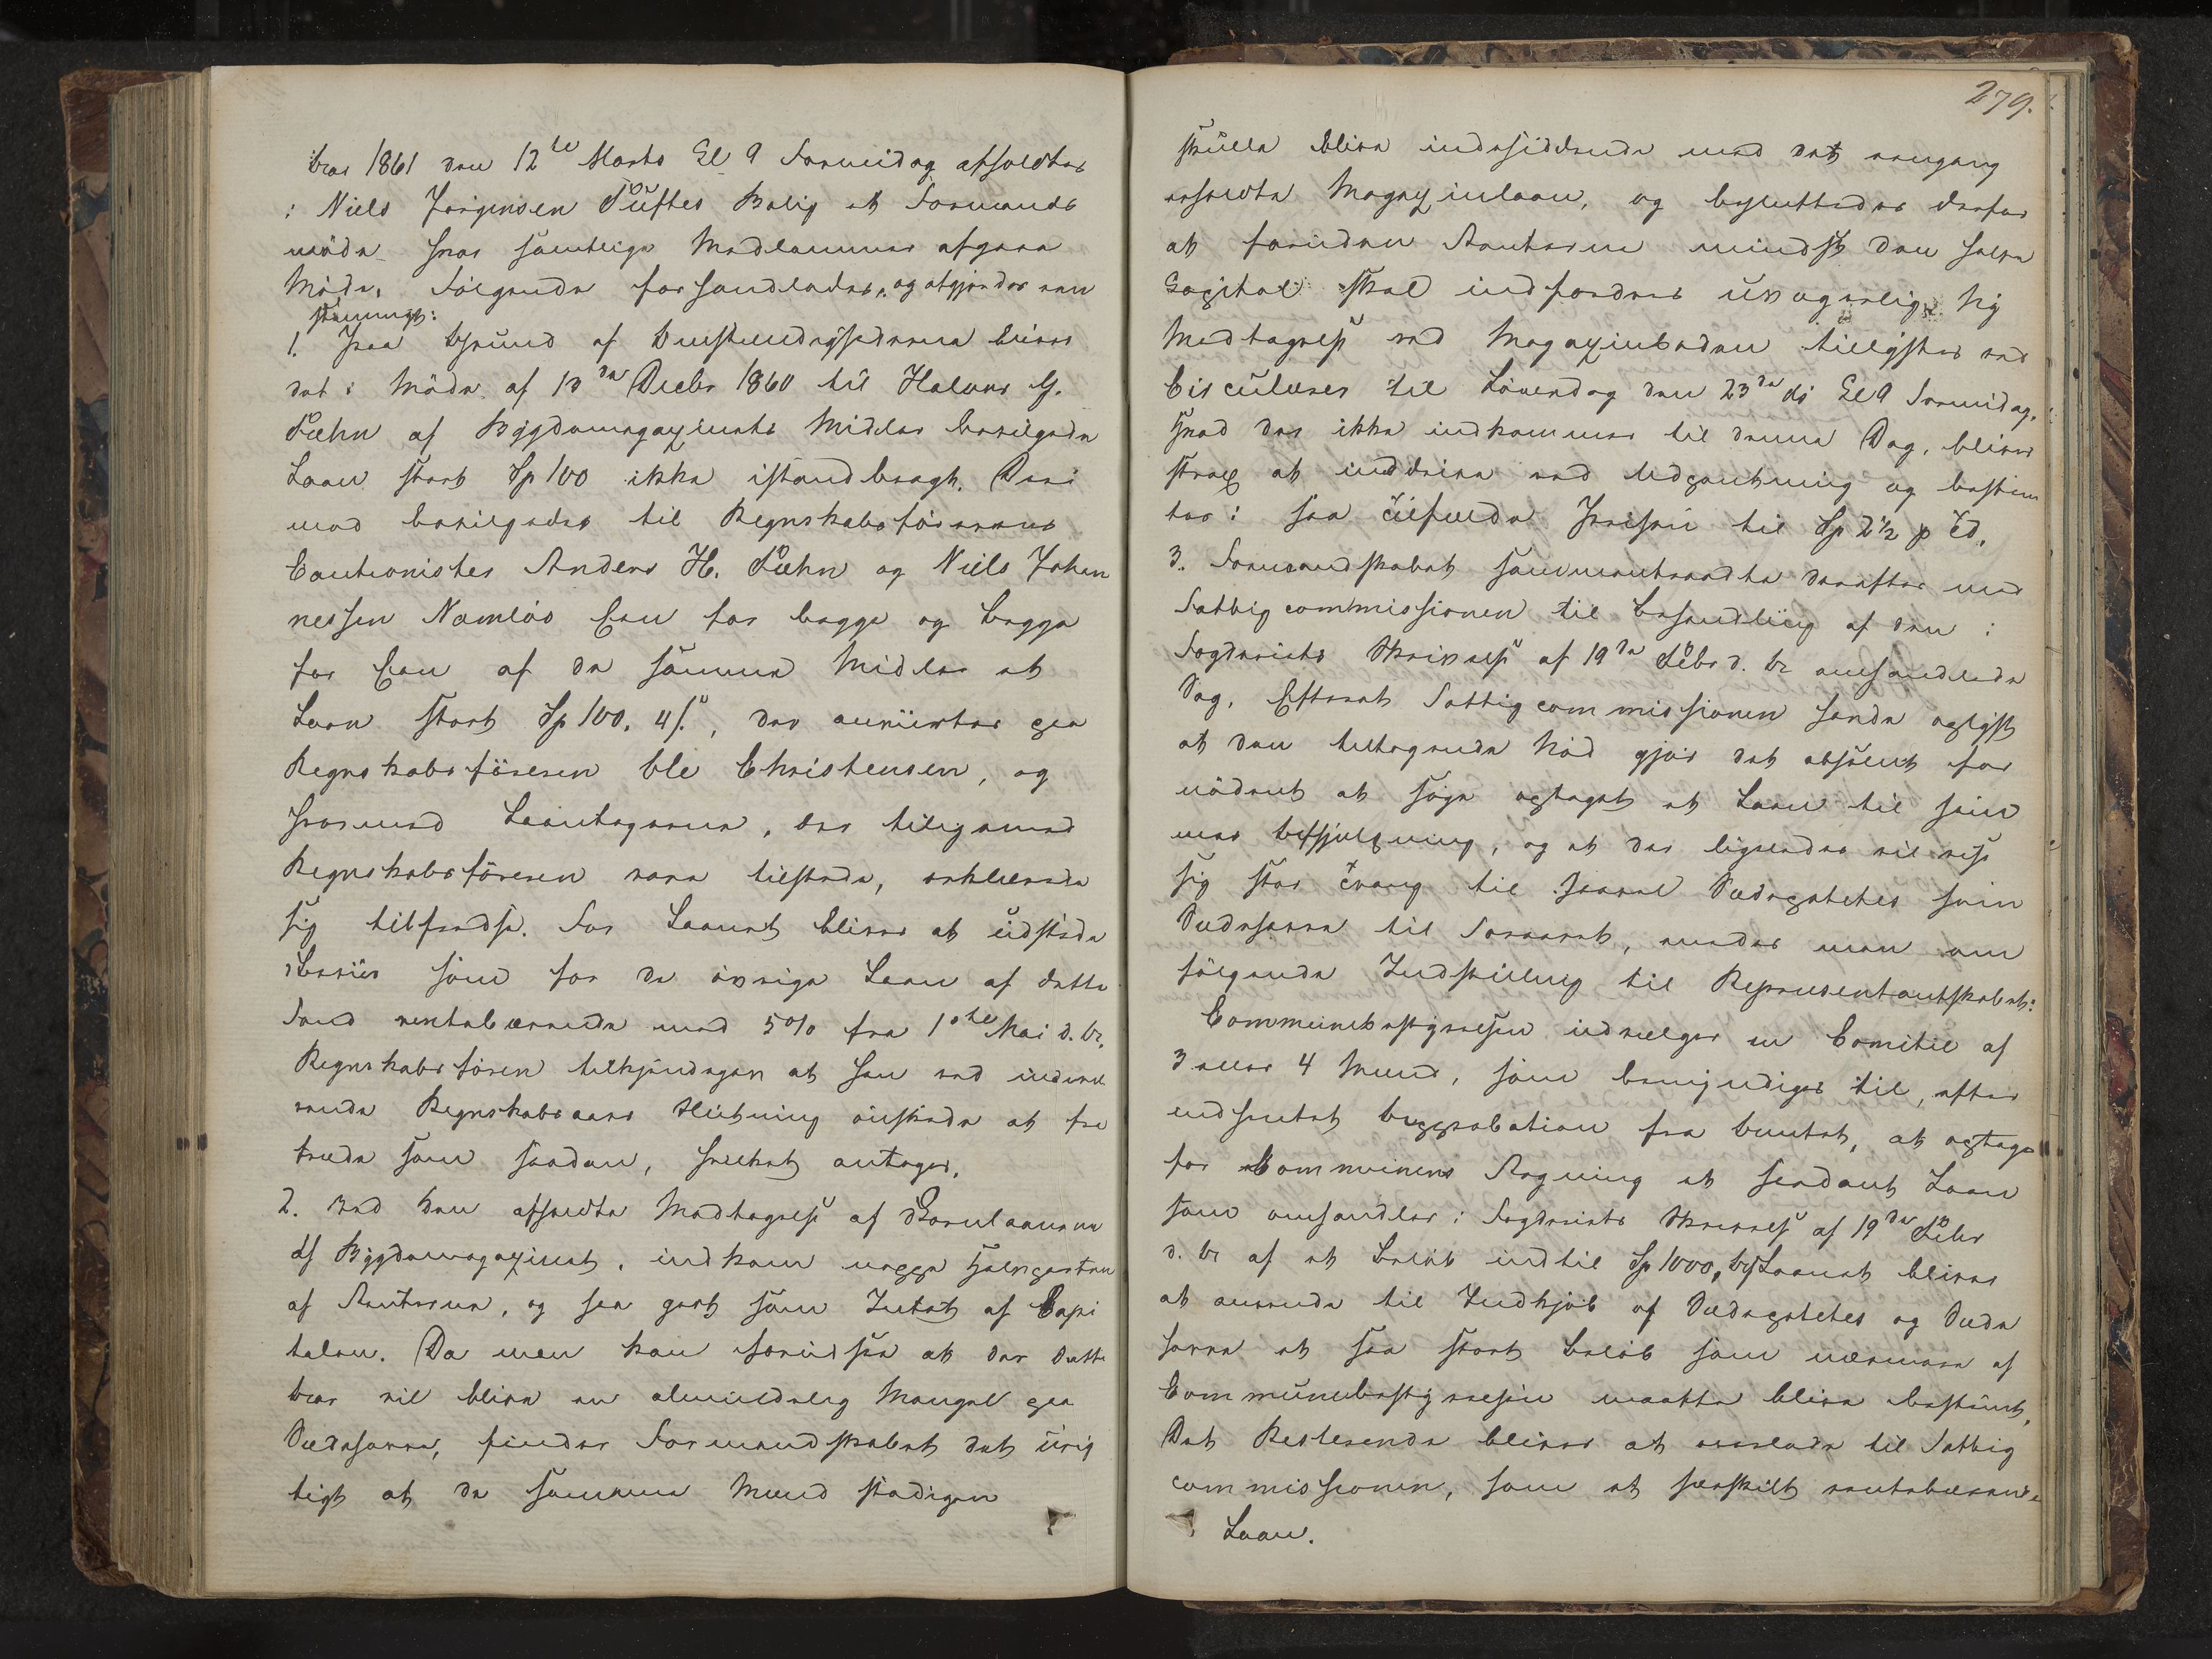 Aar 1861 den 12te Marts Kl 9 Formidag afholdtes
i Niels Jörgensen Tuftes Bolig et Formands
möde hvor samtlige Medlemmer afgave
Möde. Fölgende forhandledes, og afgjordes een
stemmigt:
1. Paa Grund af Omstændighederne bliver
det i Möde af 13de Decbr 1860 til Halvor G.
Fæhn af Bygdemagazinets Midler bevilgede
Laan stort Sp 100 ikke istandbragt. Deri
mod bevilgedes til Regnskabsförerens
Cautionister Anders H. Fæhn og Niels Johan
nessen Namlös Een for begge og begge
for Een af de samme Midler et
Laan stort Sp 100, 4/., der anviistes paa
Regnskabsföreren Ole Christensen, og
hvormed Laantagerne, der tilligemed
Regnskabsföreren vare tilstede, erklærede
sig tilfredse. For Laanet bliver at udstede
Beviis som for de övrige Laan af dette
Fond rentebærende med 5% fra 1ste Mai d. A.
Regnskabsfören tilkjendegav at han ved indevæ
rende Regnskabsaars Slutning önskede at fra
træde som saadan, hvilket antoges.
2. Ved den afholdte Modtagelse af Kornlaanene
af Bygdemagazinet, indkom neppe Halvparten
af Renterne, og saa godt som Intet af Capi
talen. Da man kan forudsee at der dette
Aar vil blive en almindelig Mangel paa
Sædehavre, finder Formandskabet det urig
tigt at de samme Mænd stadigen
279.
skulle blive indesiddende med det eengang
erholdte Magazinlaan, og besluttedes derfor
at foruden Renterne mindst den halve
Capital skal indfordres uvægerlig. Ny
Modtagelse ved Magazinboden tillystes ved
Circulærer til Löverdag den 23de ds Kl 9 Formidag.
Hvad der ikke indkommer til denne Dag, bliver
strax at inddrive ved Udpantning og bestem
tes i saa Tilfælde Prisen til Sp 2½ p Td.
3. Formandskabet sammentraadte derefter med
Fattigcommissionen til Behandling af den i
Fogderiets Skrivelse af 19de Febr d. A. omhandlede
Sag. Efterat Fattigcommissionen havde oplyst
at den tiltagende Nöd gjör det absolut for
nödent at söge optaget et Laan til sam
mes Afhjælpning, og at der ligeledes vil vise
sig stor Trang til saavel Sædepoteter som
Sædehavre til Foraaret, enedes man om
fölgende Indstilling til Repræsentantskabet:
Communebestyrelsen udvælger en Comitee af
3 eller 4 Mænd, som bemyndiges til, efter
indhentet Approbation fra Amtet, at optage
for Communens Regning et saadant Laan
som omhandles i Fogderiets Skrivelse af 19de Febr
d. A. af et Belöb indtil Sp 1000, Af Laanet bliver
at anvende til Indkjöb af Sædepoteter og Sæde
havre et saa stort Belöb som nærmere af
Communebestyrelsen maatte blive bestemt.
Det Resterende bliver at overlade til Fattig
commissionen, som et særskilt rentebærende
Laan.